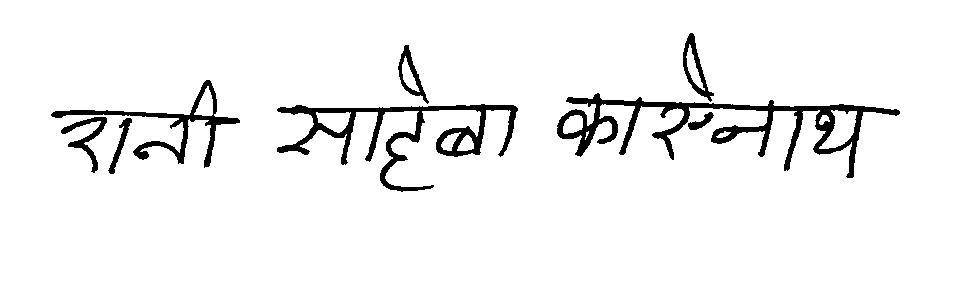 रानी साहेबा कारनेाथ